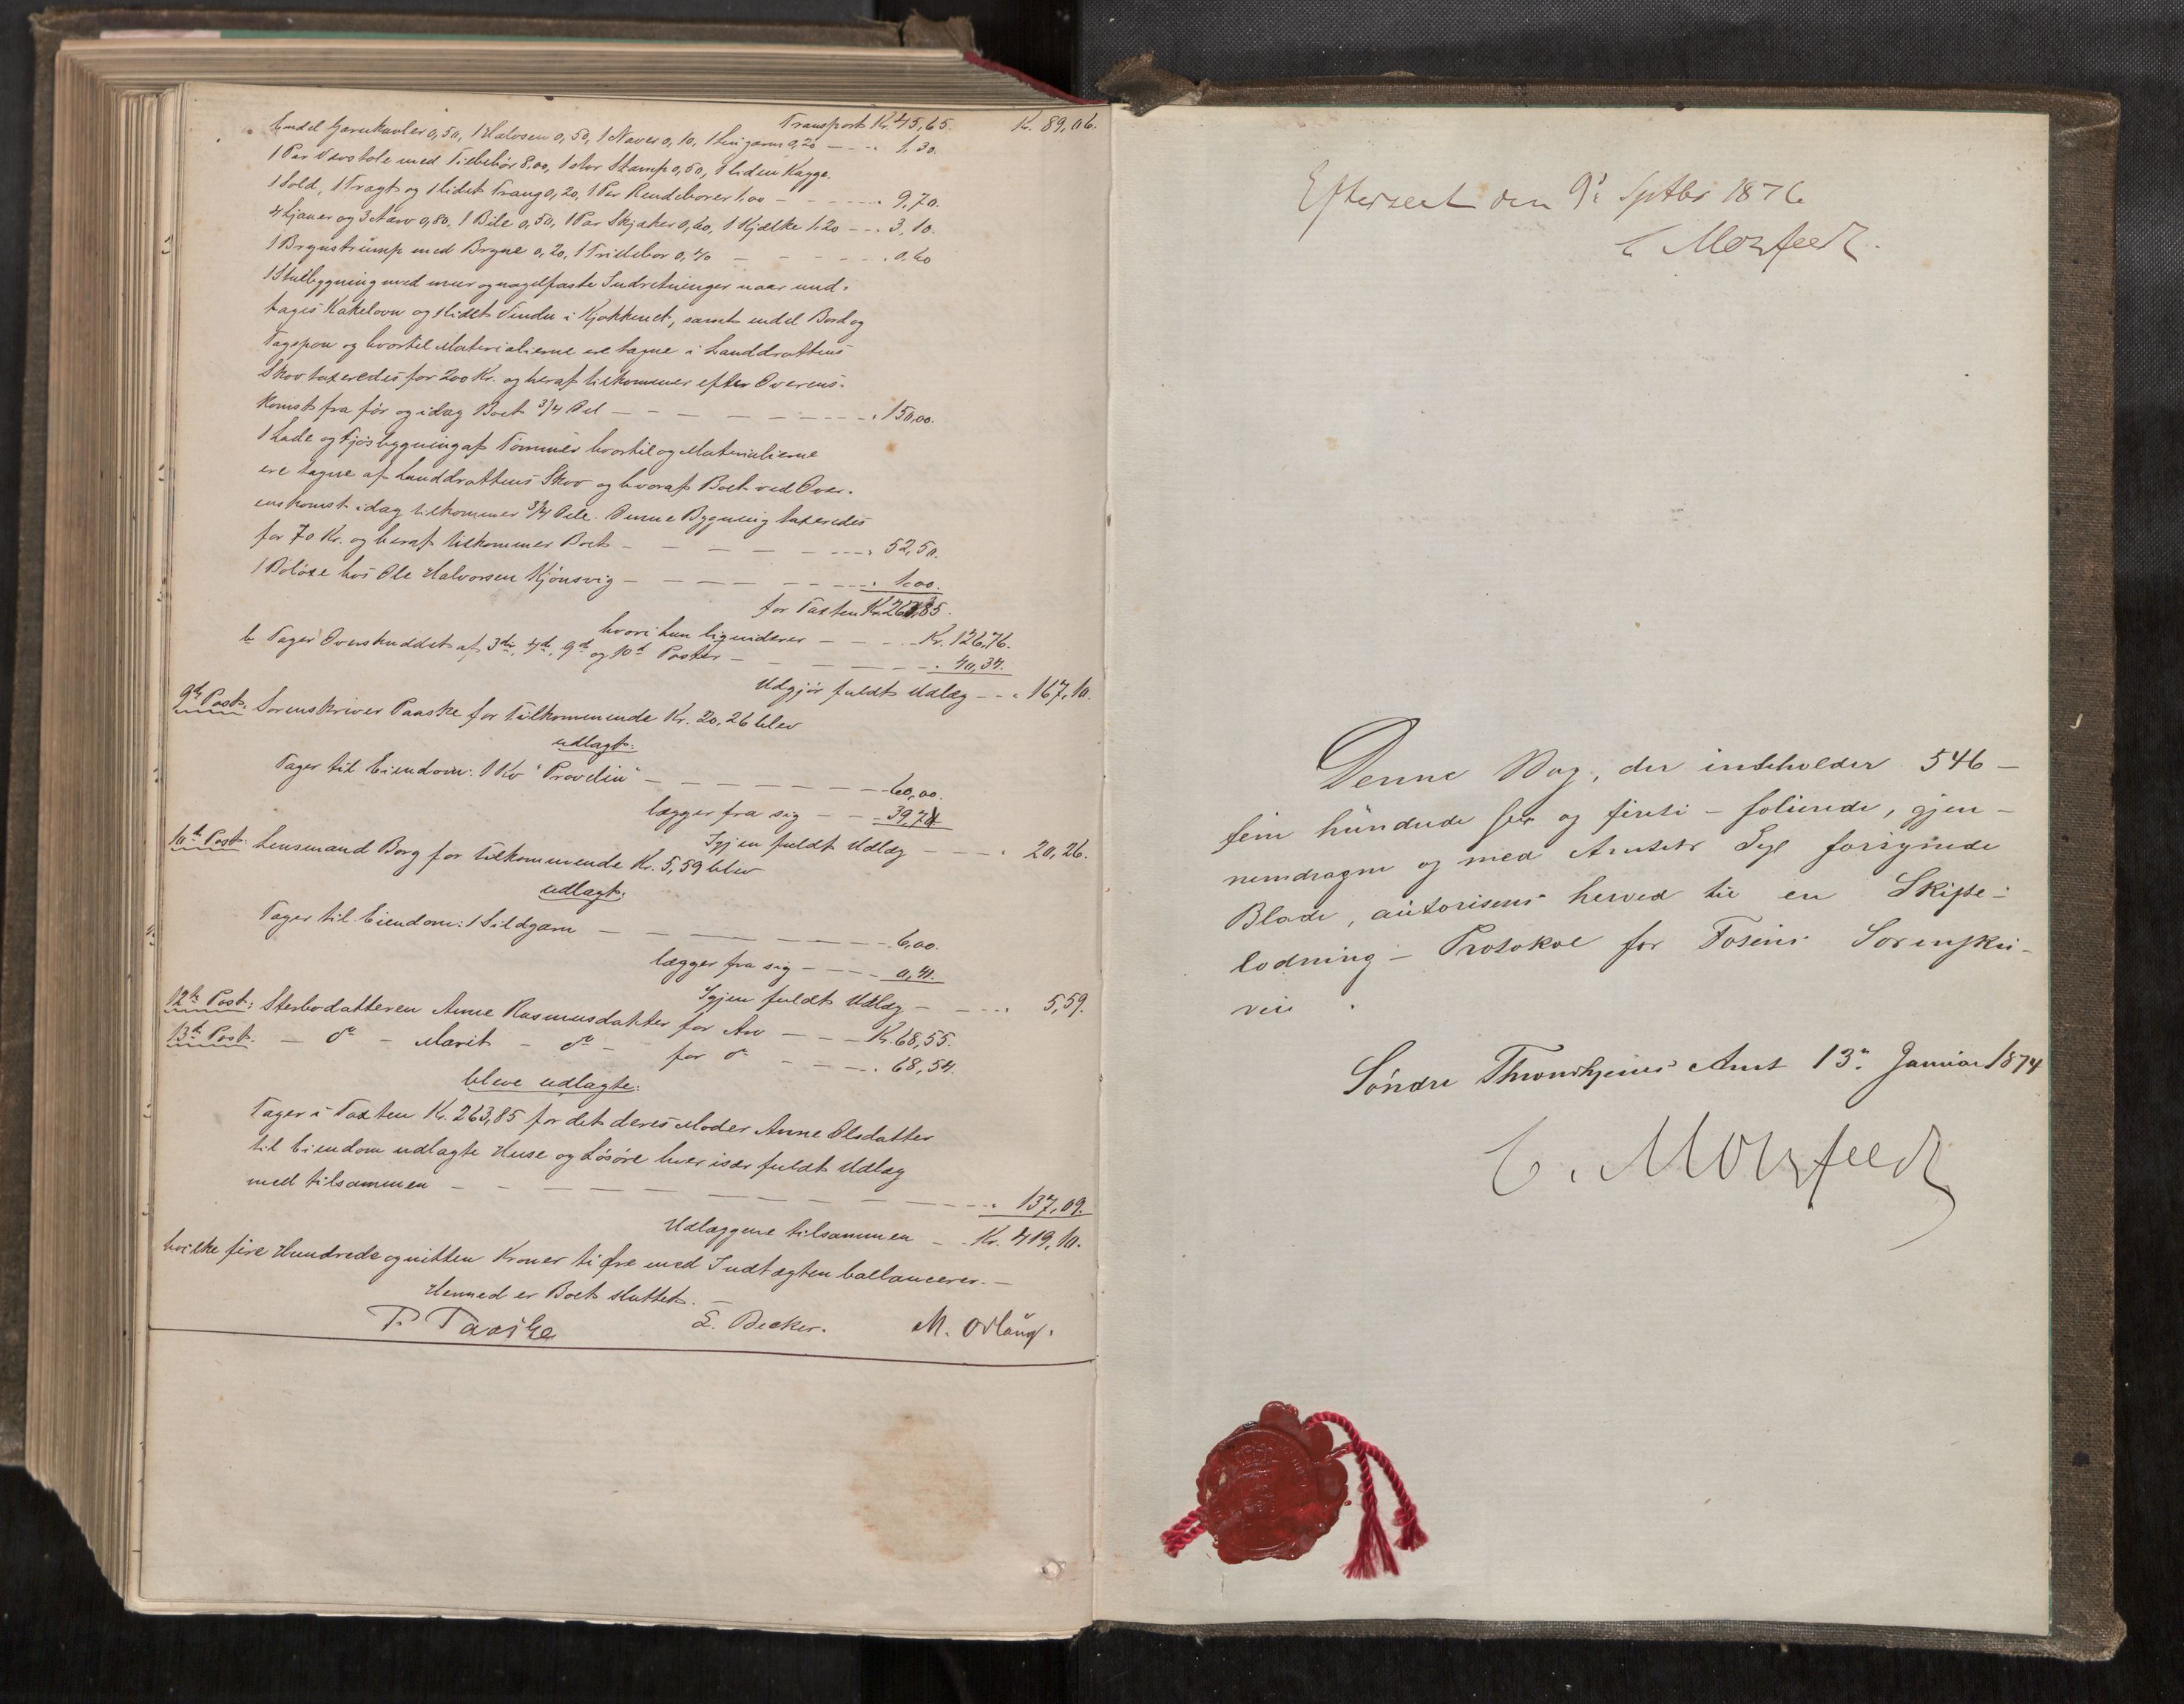 Transport Kr. 45,65. Kr. 89,06.
Endel Garnkavler 0,50, 1 Halvsem 0,50, 1 Naver 0,10, 1 Lingarn 0,20 - - - 1.30.
1 Par Vævstole med Tilbehør 8,00, 1 stor Stamp 0,50, 1 liden Kagge.
1 Sold, 1 Tragt og 1 lidet Traug 0,20, 1 Per Rendeborer 1.00 - - - 9.70.
4 Ljaaer og 3 0,80. 1 Bile 0,50, 1 Par Skjaker 0,60, 1 Kjælke 1.20 - - - 3,10.
1 Brynstrump med Bryne 0,20, 1 0,40 - - - 0.60
1 Stuebygning med muur og nagelfaste Indretninger naar und-
tages Kakelovn og 1 lidet Vindu i Kjøkkenet, samt endel Bord og
Tagspon og hvortil Materialierne ere tagne i Landdrottens
Skov taxeredes for 200 Kr. og heraf tilkommer efter Overens-
komst fra før og idag Boet 3/4 Del - - - 150,00.
1 Lade og Fjøsbygning af Tømmer hvortil og Materialierne
ere tagne af Landdrottens Skov og hvoraf Boet ved Over-
enskomst idag tilkommer 3/4 Dele. Denne Bygning taxeredes
for 70 Kr. og heraf tilkommer Boet - - - 52,50.
1 Boløxe hos Ole Halvorsen Kjønsvig - - - 1.00.
for Taxten Kr. 263,85.
hvori hun liqviderer - - - Kr. 126,76.
b Tager Overskuddet af 3die, 4de, 9d og 10d Poster - - - 40,34.
Udgjør fuldt Udlæg - - - 167,10.
9de Post. Sorenskriver Paaske for Tilkommende Kr. 20,26 blev
udlagt:
Tager til Eiendom: 1 Ko "Provelin" - - - 60,00.
lægger fra sig - - - 39,74
Igjen fuldt Udlæg - - - 20,26.
10de Post. Lensmand Borg for tilkommende Kr. 5,59 blev
udlagt:
Tager til Eiendom: 1 Sildgarn - - - 6,00.
lægger fra sig - - - 0,41.
Igjen fuldt Udlæg - - - 5,59.
12te Post: Sterbodatteren Anne Rasmusdatter for Arv - - - Kr. 68,55.
13de Post. - do - Marit - do - for do - - - 68,54.
bleve udlagte:
Tager i Taxten Kr. 263,85 for det deres Moder Anne Olsdatter
til Eiendom udlagte Huse og Løsøre hver især fuldt Udlæg
med tilsammen - - - 137,09.
Udlæggene tilsammen - Kr. 419,10.
hvilke fire Hundrede og nitten Kroner ti Øre med Indtægten ballancerer. -
Hermed er Boet sluttet. -
P. Paaske E. Becker. M. Ovlaug.
Efterseet den 9' Sptbr 1876
C Motzfeldt.
Denne Bog, der indeholder 546 -
fem hundrede sex og firti - folierede, gjen-
nemdragne og med Amtets Segl forsynede
Blade, autoriseres herved til en Skifte-
lodnings - Protokol for Fosens Sorenskri-
veri.
Søndre Throndhjems Amt 13. Januar 1874
C. Motzfeldt